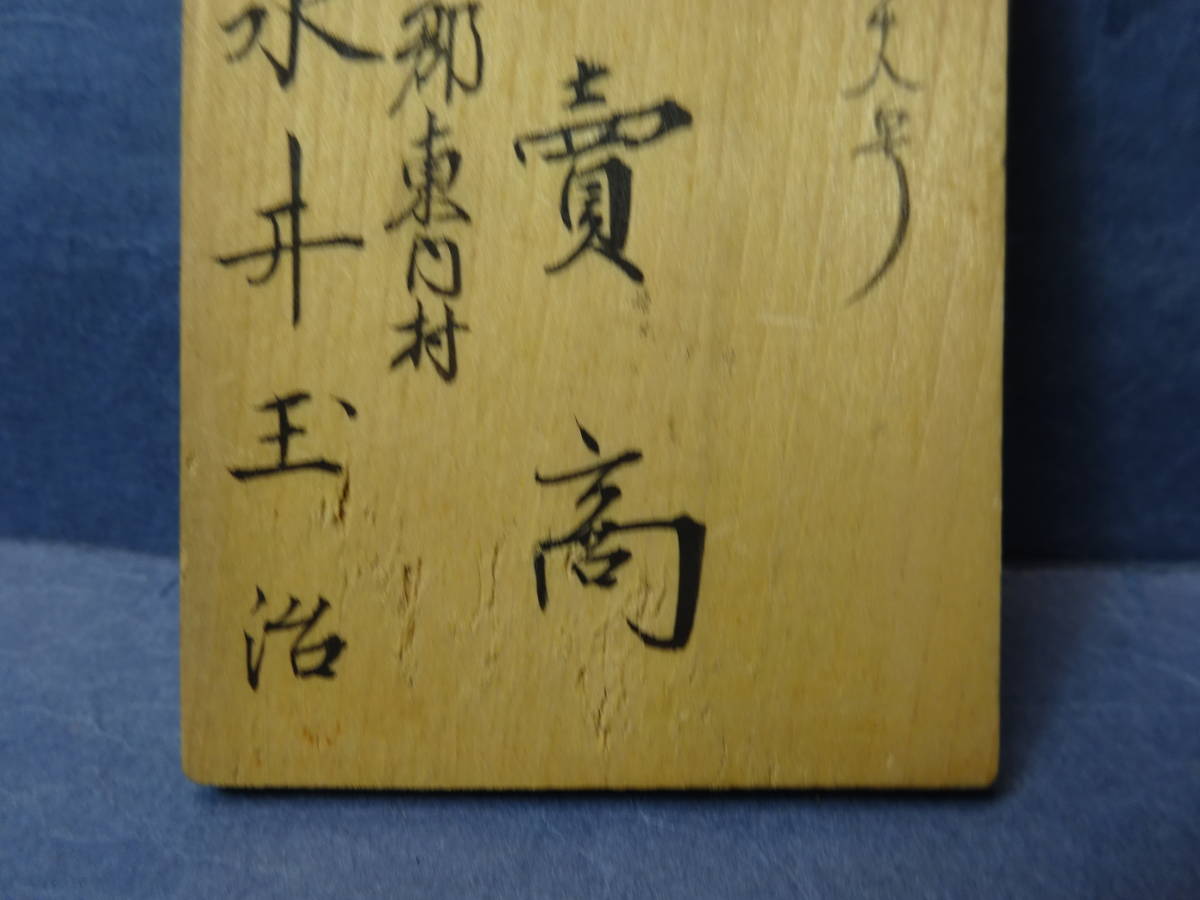 八号
賣商
郡東内村
永井玉治